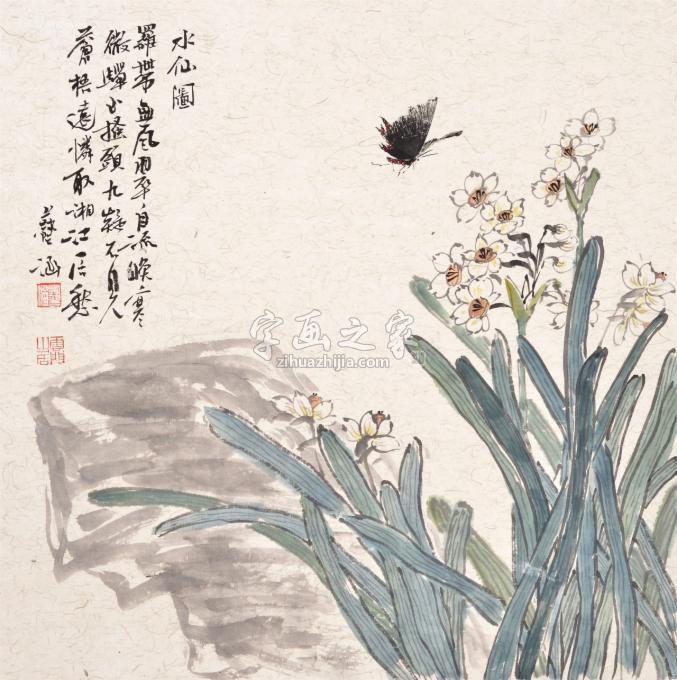 水仙圖
羅帶無風翠自流晚寒
微嚲玉搔頭九疑不見
蒼梧遠憐取湘江一片愁
涵
字画之家
zihuazhijia.com